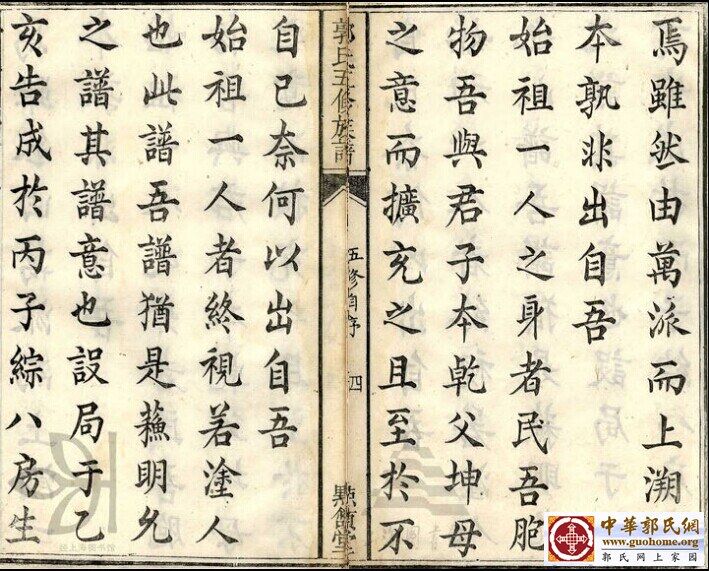 焉雖然由萬派而上溯
本孰非出自吾
始祖一人之身者民吾胞
物吾與君子本乾父坤母
之意而擴充之且至於不
郭氏五修族譜
五修自序
四
自己奈何以出自吾
始祖一人者終視若塗人
也此譜吾譜猶是蘓明允
之譜其譜意也設局于乙
亥告成於丙子綜八房生
中華郭氏網
www.guohome.org
郭氏网上家园